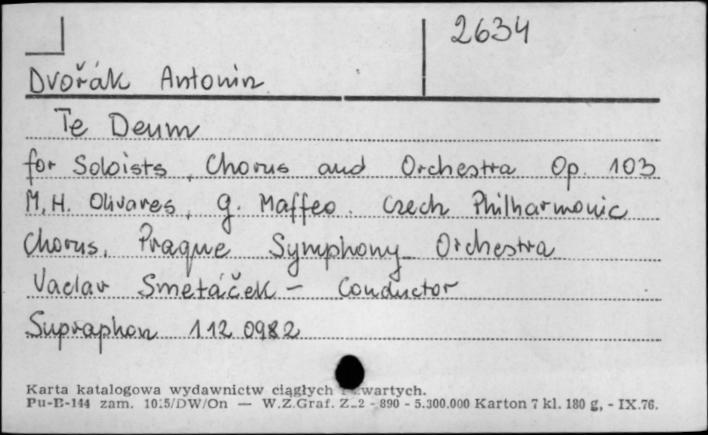 2634
Dvořák Antonin
Te Deum
for Soloists, Chorus and Orchestra Op. 103
M.H. Olivares, G. Maffeo. Czech Philharmonic
Chorus, Prague Symphony Orchestra
Vaclav Smetáček - Conductor
Supraphon 112 0982
Karta katalogowa wydawnictw ciągłych zwartych.
Pu-B-144 zam. 1015/DW/On — W.Z.Graf. Z-2 - 890 - 5.300.000 Karton 7 kl. 180 g, - IX.76.